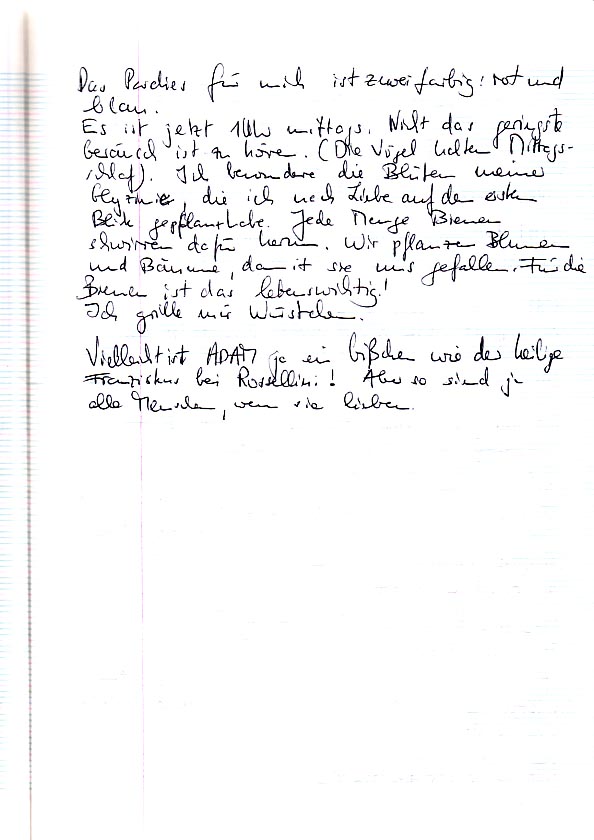 Das Paradies für mich ist zweifarbig: rot und
blau.
Es ist jetzt 1 Uhr mittags. Nicht das geringste
Geräusch ist zu hören. (Die Vögel halten Mittags-
schlaf). Ich bewundere die Blüten meiner
die ich nach Liebe auf den ersten
Blick gepflanzt habe. Jede Menge Bienen
schwirren dafür herum. Wir pflanzen Blumen
und Bäume, damit sie uns gefallen. Für die
Bienen ist das lebenswichtig!
Ich grille mir Würstchen.
Vielleicht ist ADAM ja ein bißchen wie der heilige
Franziskus bei Rossellini! Aber so sind ja
alle Menschen, wenn sie lieben.